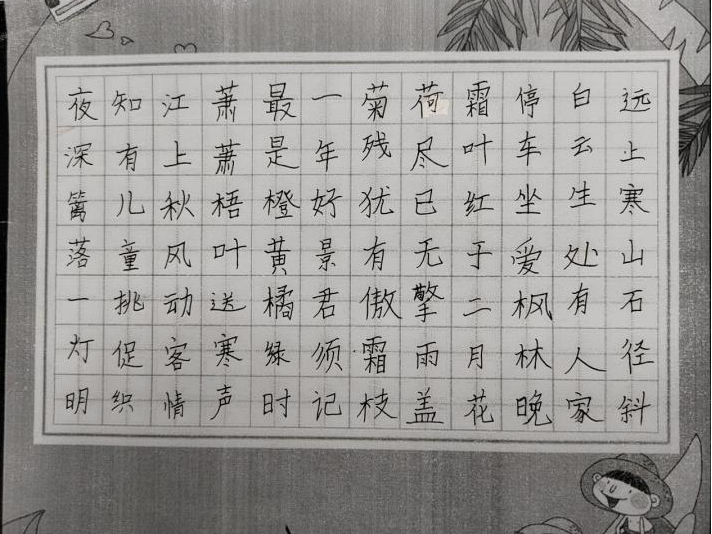 远上寒山石径斜
白云生处有人家
停车坐爱枫林晚
霜叶红于二月花
荷尽已无擎雨盖
菊残犹有傲霜枝
一年好景君须记
最是橙黄橘绿时
萧萧梧叶送寒声
江上秋风动客情
知有儿童挑促织
夜深篱落一灯明